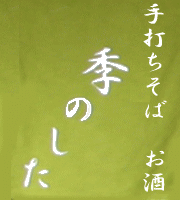 手打ちそば お酒
季のした